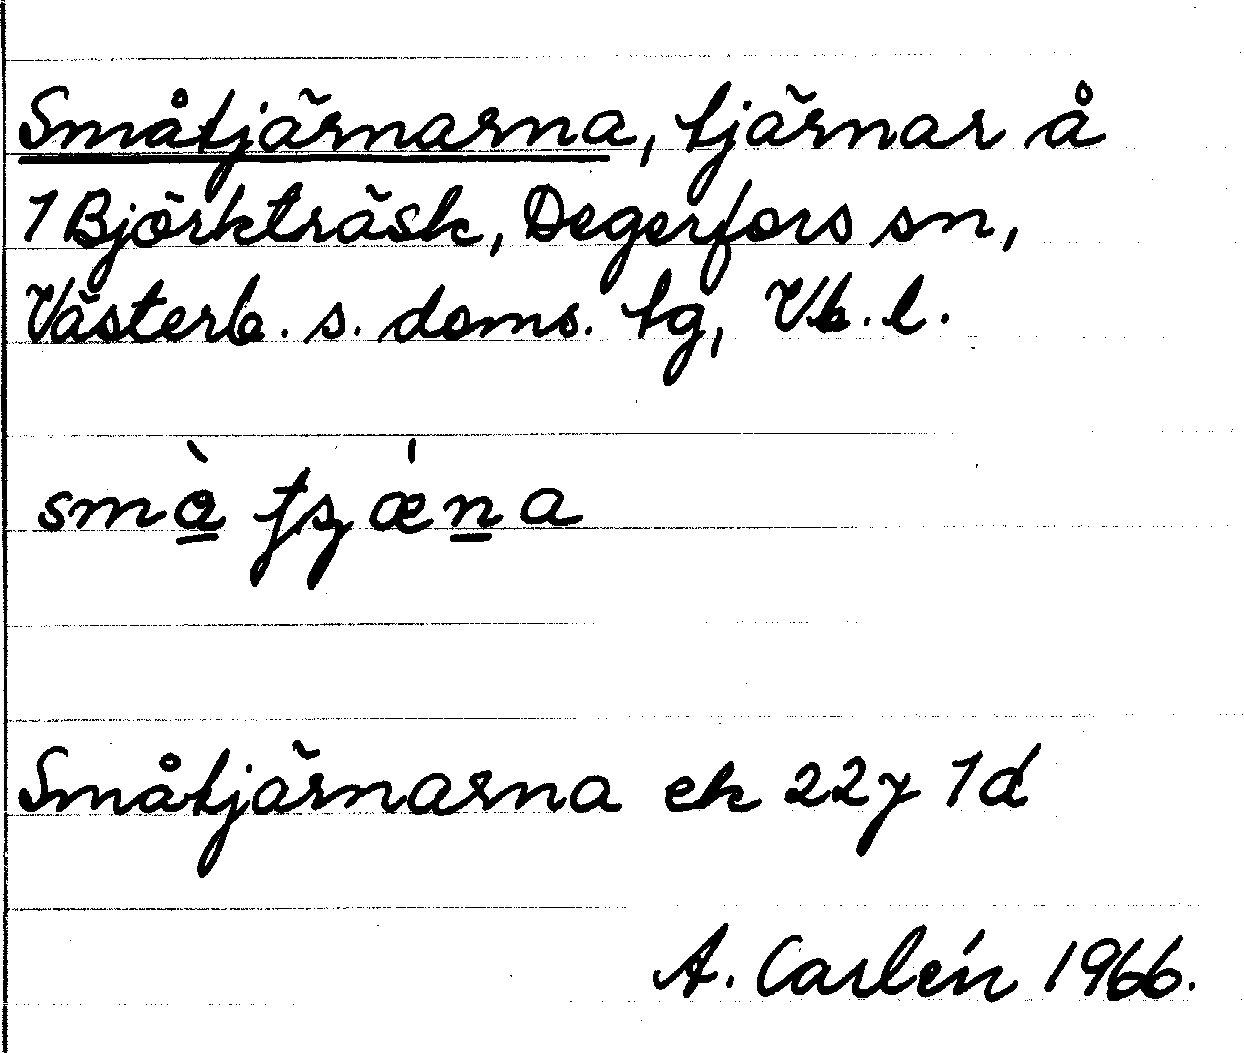 Småtjärnarna, tjärnar å
1 Björkträsk, Degerfors sn,
Västerb. s. doms. tg, Vb. l.
Småtjärnarna ek 22y 1d
A. Carlén 1966.